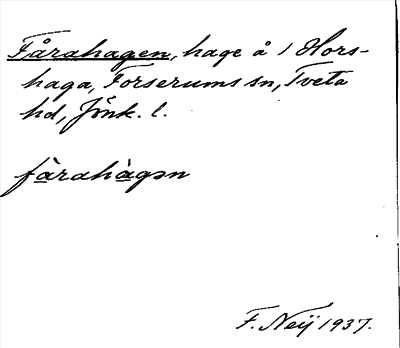 Fårahagen, hage å 1 Hors-
haga, Forserums sn, Tveta
hd, Jönk. l.
fàrahàgən
F. Neij 1937.